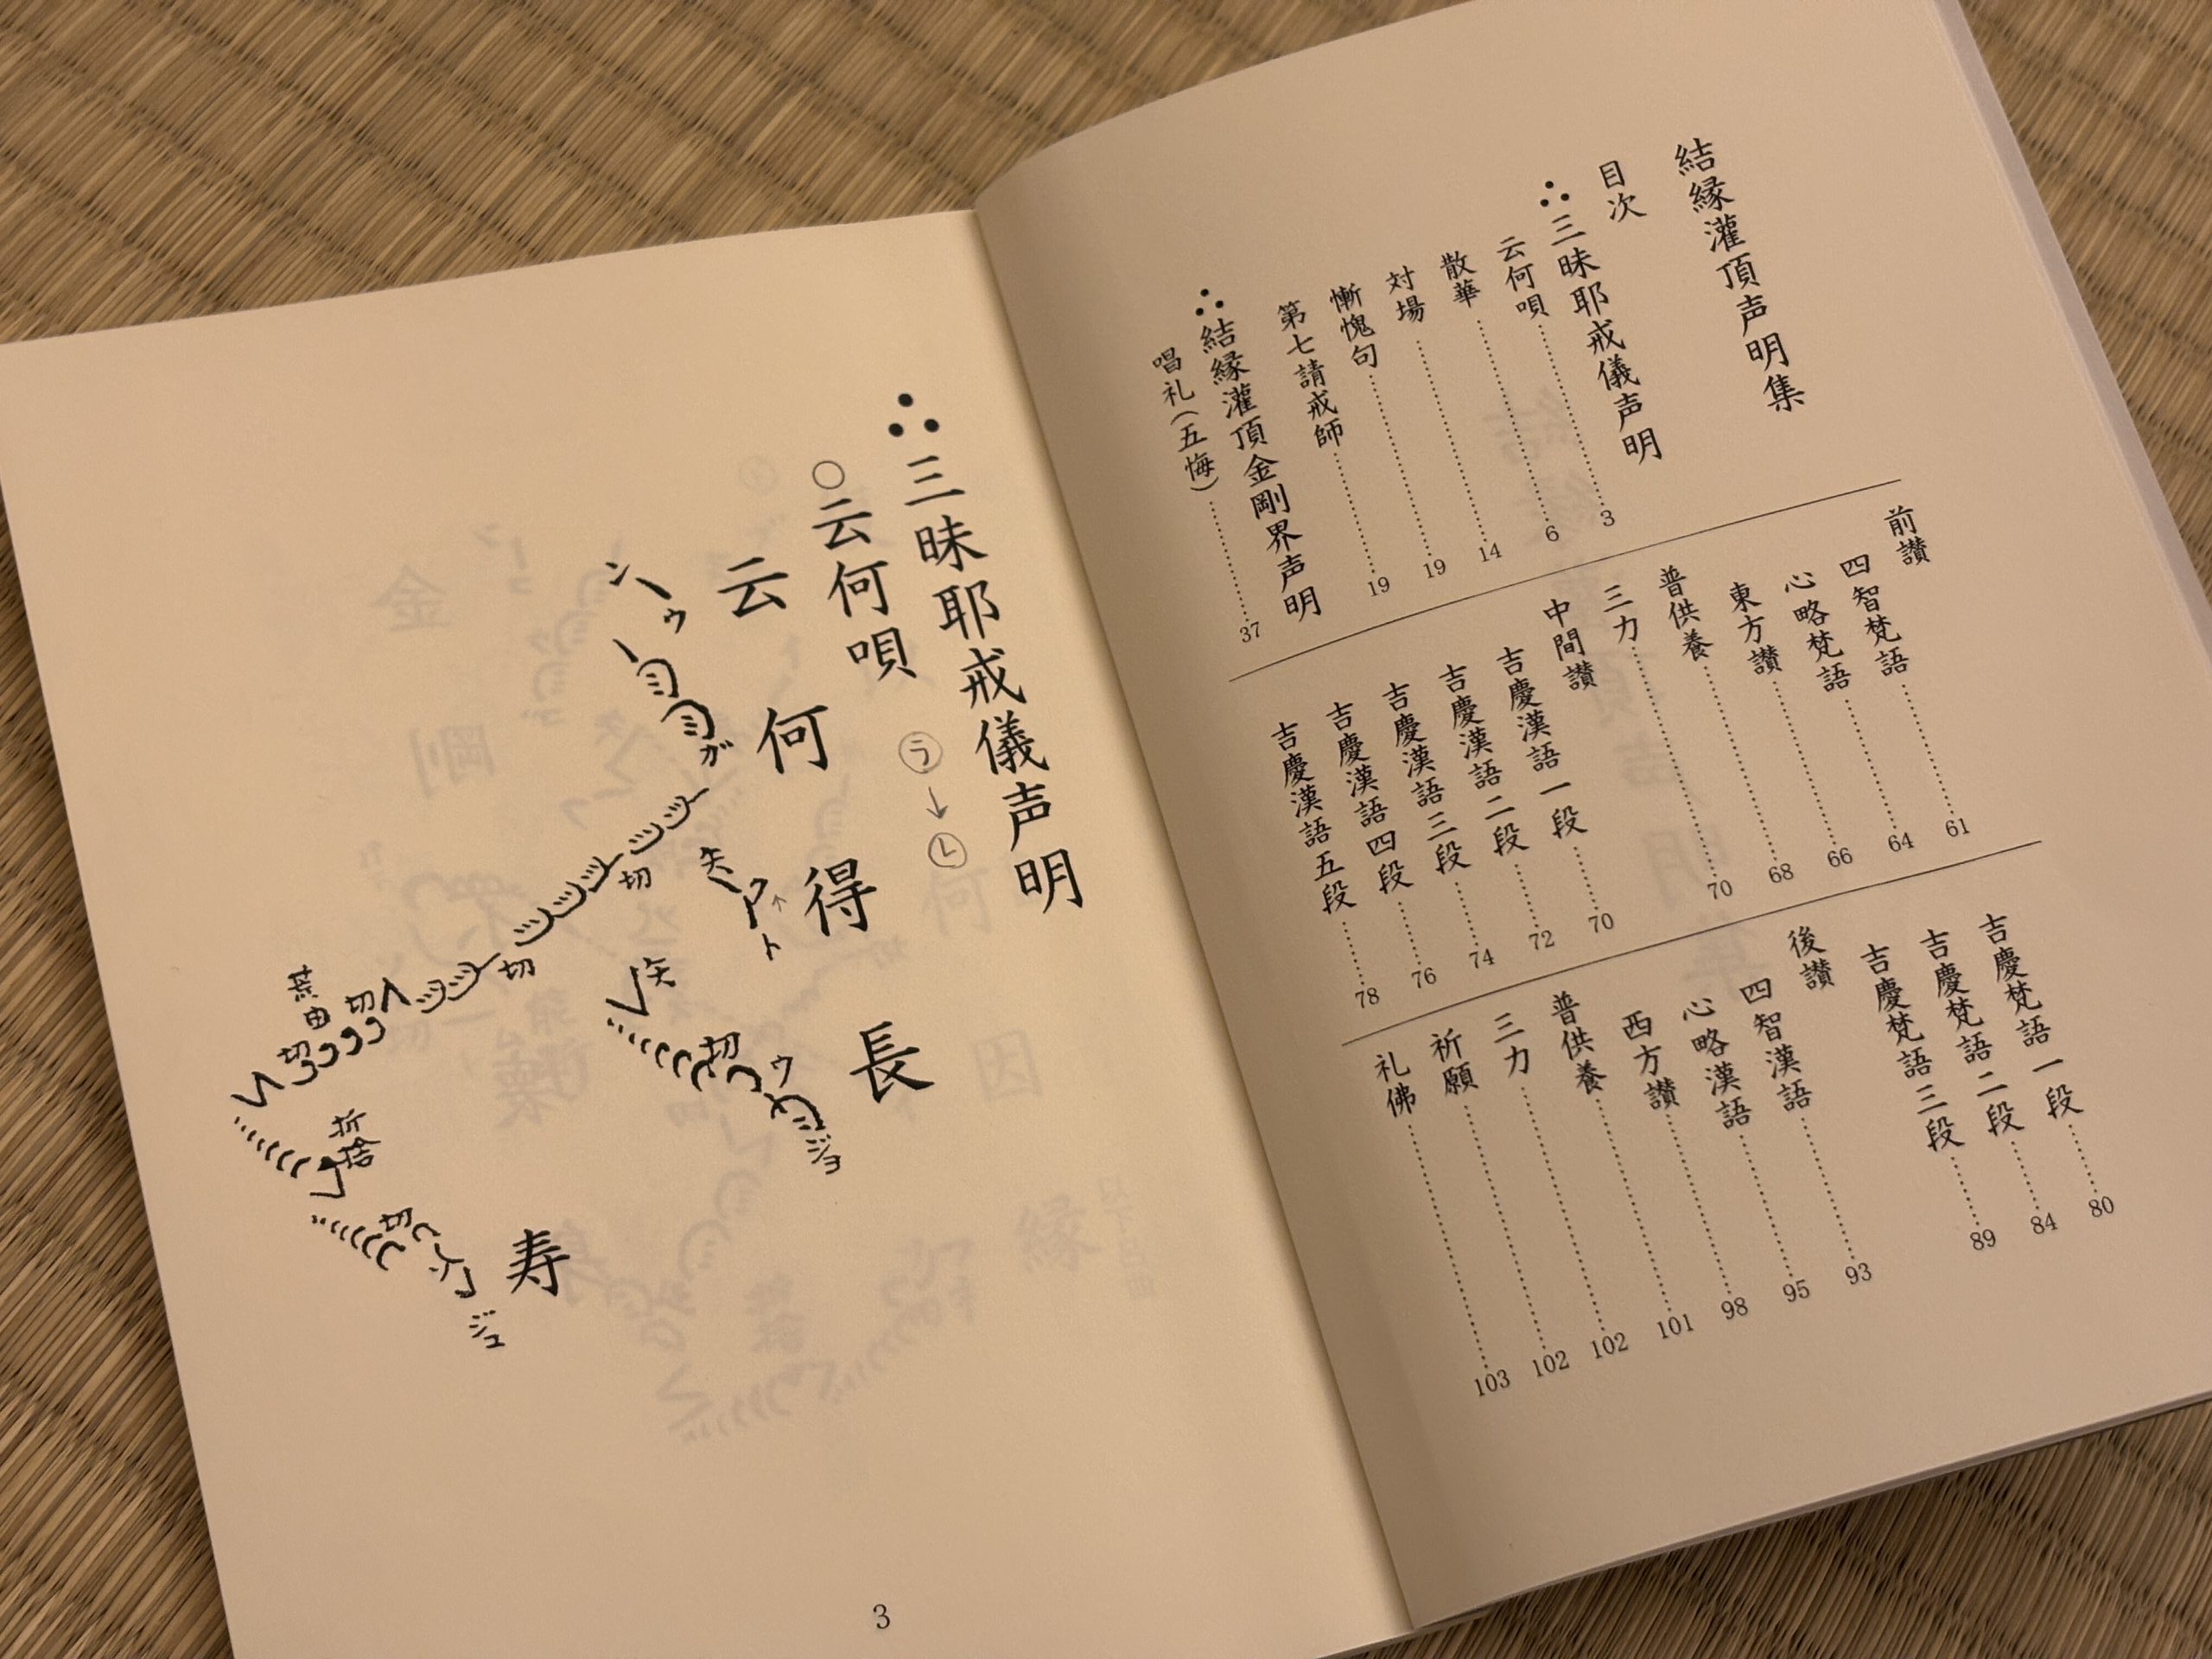 結縁灌頂声明集
目次
∴三昧耶戒儀声明
云何唄……………3
散華……………6
対揚……………14
慚愧句……………19
第七請戒師……………19
∴結縁灌頂金剛界声明
唱礼(五悔)……………37
前讃
四智梵語……………61
心略梵語……………64
東方讃……………66
普供養……………68
三力……………70
中間讃
吉慶漢語一段……………70
吉慶漢語二段……………72
吉慶漢語三段……………74
吉慶漢語四段……………76
吉慶漢語五段……………78
吉慶梵語一段……………80
吉慶梵語二段……………84
吉慶梵語三段……………89
後讃
四智漢語……………93
心略漢語……………95
西方讃……………98
普供養……………101
三力……………102
祈願……………102
礼佛……………103
∴三昧耶戒儀声明
○云何唄 ㋶→㋹
云何得長
ン
ゥ
ガ
矢
ク
ト
ジョ
ウ
切
矢
切
切
切
荒由
切
折捨
切
寿
ジュ
3